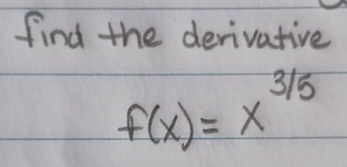 find the derivative
f(x) = x^3/5